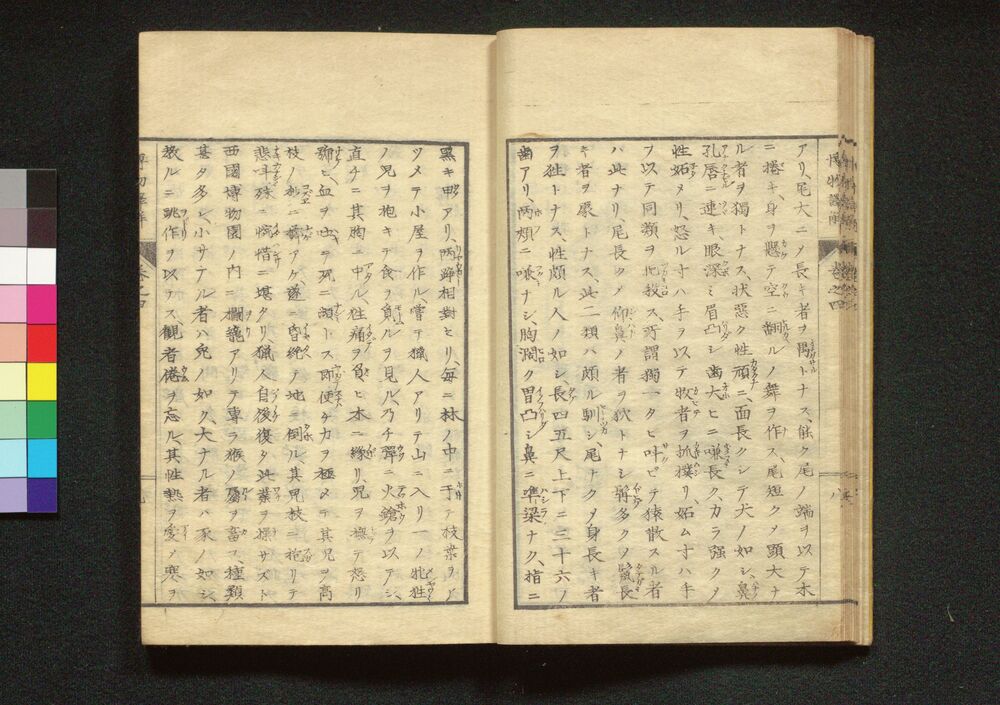 アリ、尾大ニ〆長キ者ヲ禺トナス、能ク尾ノ端ヲ以テ木
ニ捲キ、身ヲ懸テ空ニ飜ルノ舞ヲ作ス、尾短ク〆頭大ナ
ル者ヲ獨トナス、状悪ク性頑ニ、面長クシテ犬ノ如シ、鼻
孔唇ニ連キ、眼深ミ眉凸シ歯大ヒニ嗛長ク、カラ強ク〆
性妬メリ、怒ル寸ハ手ヲ以テ牧者ヲ抓撲リ、妬ム寸ハ手
ヲ以テ同類ヲ殺ス、所謂獨一タヒ叫ヒテ猿散スル者
ハ此ナリ、尾長ク〆仰鼻ノ者ヲ狖トナシ、髯多ク〆鬣長
キ者ヲ トナス、此二類ハ頗ル馴シ、尾ナク〆身長キ者
ヲ狌トナス、性頗ル人ノ如シ、長四五尺上下ニ三十六ノ
歯アリ、両頬ニ嗛ナシ、胸濶ク胃凸シ鼻ニ準梁ナク、指ニ
博物
巻之四
八
黒キ甲アリ、両蹄相對セリ、毎ニ林ノ中ニ于テ枝葉ヲア
ツメテ小屋ヲ作ル、嘗テ獵人アリテ山ニ入リ一ノ牝狌
ノ兒ヲ抱キテ食ヲ負ルヲ見ル、乃チ彈ニ火鎗ヲ以テシ、
直チニ其胸ニ中ル、狌痛ヲ負ヒ木ニ縁リ、兒ヲ攜テ怒リ
號ヒ、血ヲ吐ヲ死ニ瀕トス即便チカヲ極メテ其兒ヲ高
枝ノ杪ニ擠アケ遂ニ昏絶テ地ニ倒ル其兒枝ニ抱リテ
悲叫殊ニ憐惜ニ堪タリ獵人自後復タ此業ヲ操サズト
西國博物園ノ内ニ欄籠アリテ專ラ猴ノ屬ヲ畜フ、種類
甚タ多シ、小サナル者ハ兒ノ如ク、大ナル者ハ豕ノ如シ、
教ルニ跳作ヲ以テス観者倦ヲ忘ル、其性熱ヲ愛〆寒ヲ
巻之四
九